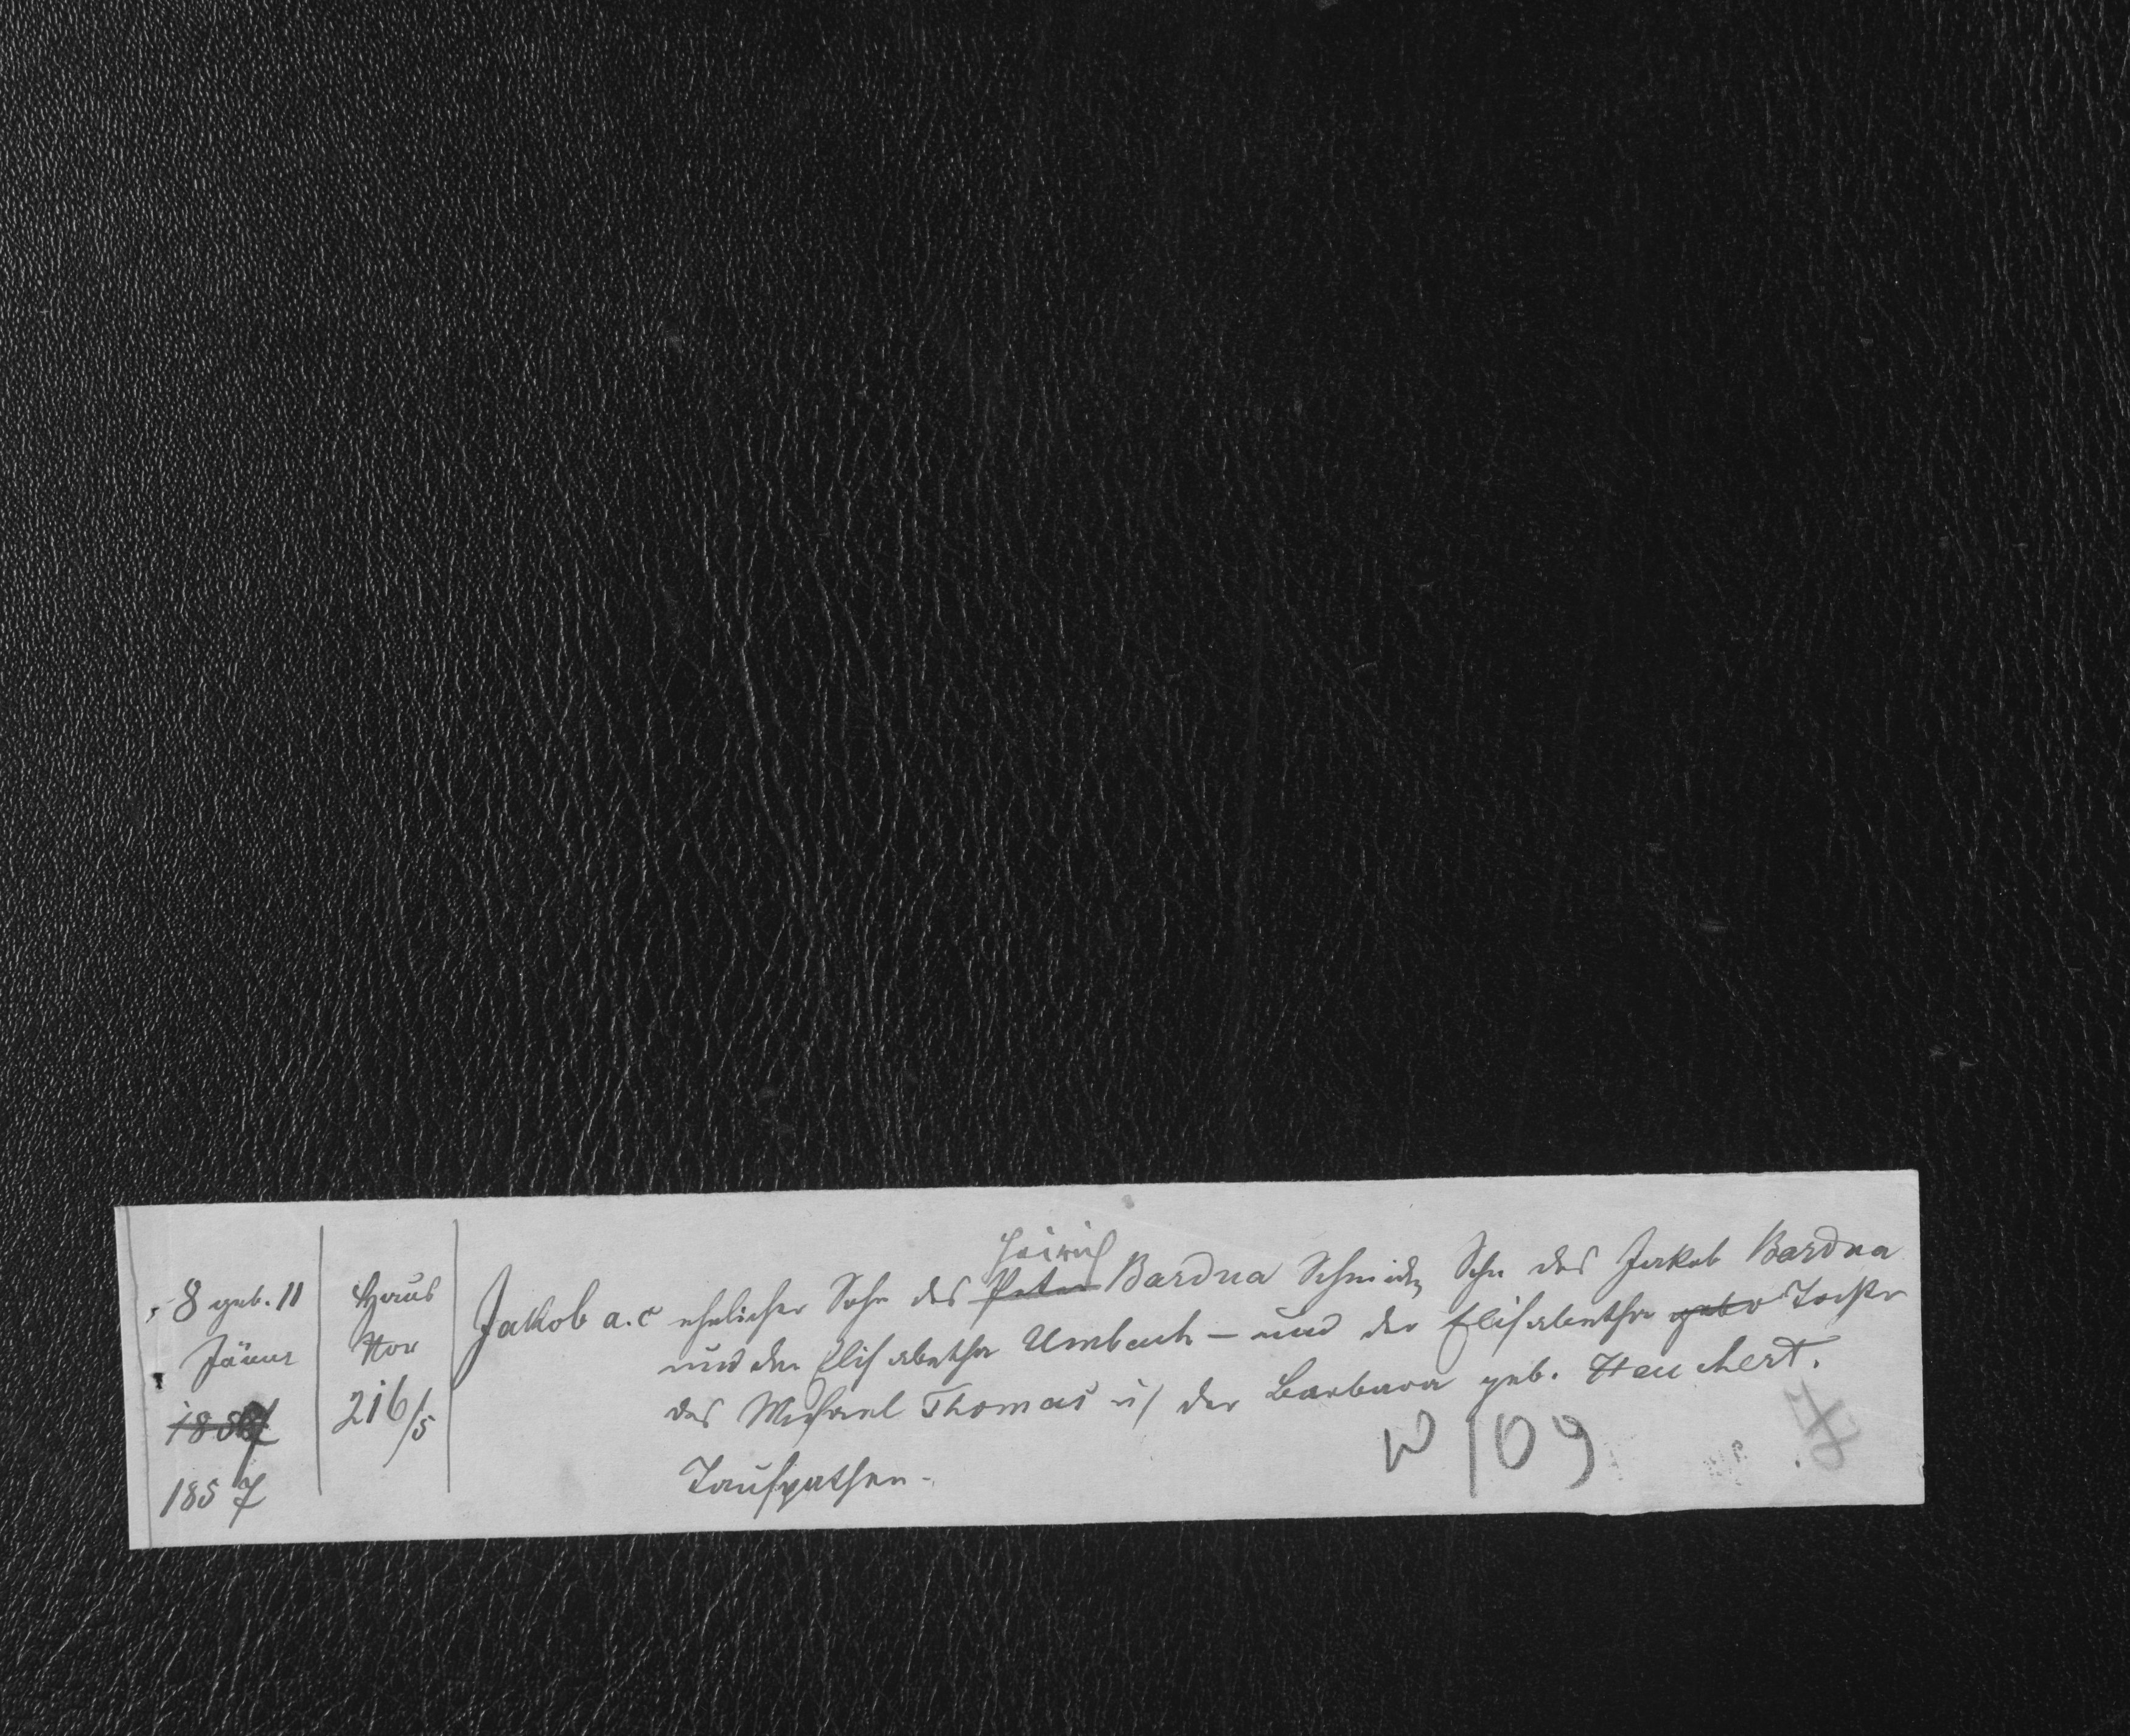 8 geb. 11
Jäner
1857
1857
Haus
Nro
216/5
Heinrich
Jakob a. c ehelicher Sohn des Peter Bardua Schmidts, Sohn des Jakob Bardua
und der Elisabetha Umbach – und der Elisabetha geb. Tochter
des Michael Thomas u/ der Barbara geb. Hauchert.
Taufpathen.
109